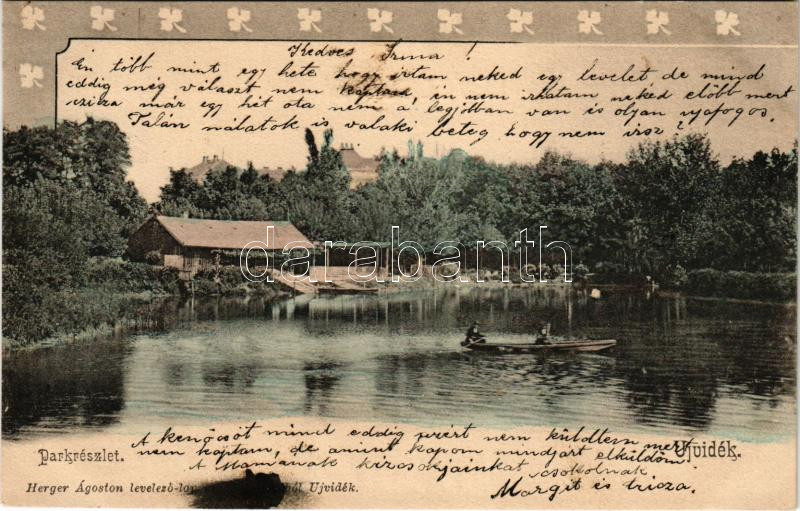 Kedves Irma!
Én több mint egy hete hogy irtam neked egy levelet de mind
eddig még választ nem kaptam én nem irhatam neked előbb mert
sziza már egy hét ota nem a legjobban van is olyan nyafogos.
Talán nálatok is valaki beteg hogy nem irsz?
darabanth
A kenőcsöt mind eddig azért nem küldtem mert
nem kaptam, de amint kapom mindjárt elküldöm.
A Mamának kezesokjainkat csokolnak
Margit és
Parkrészlet.
Ujvidék.
Herger Ágoston levelező-lap Ujvidék.